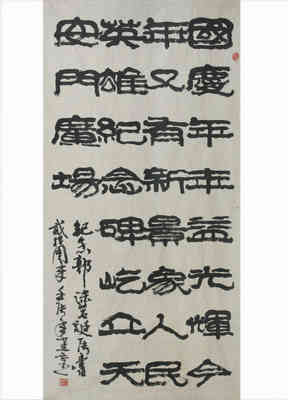 國慶年年益光輝今
年又有新景象人民
英雄紀念碑屹立天
安門廣場